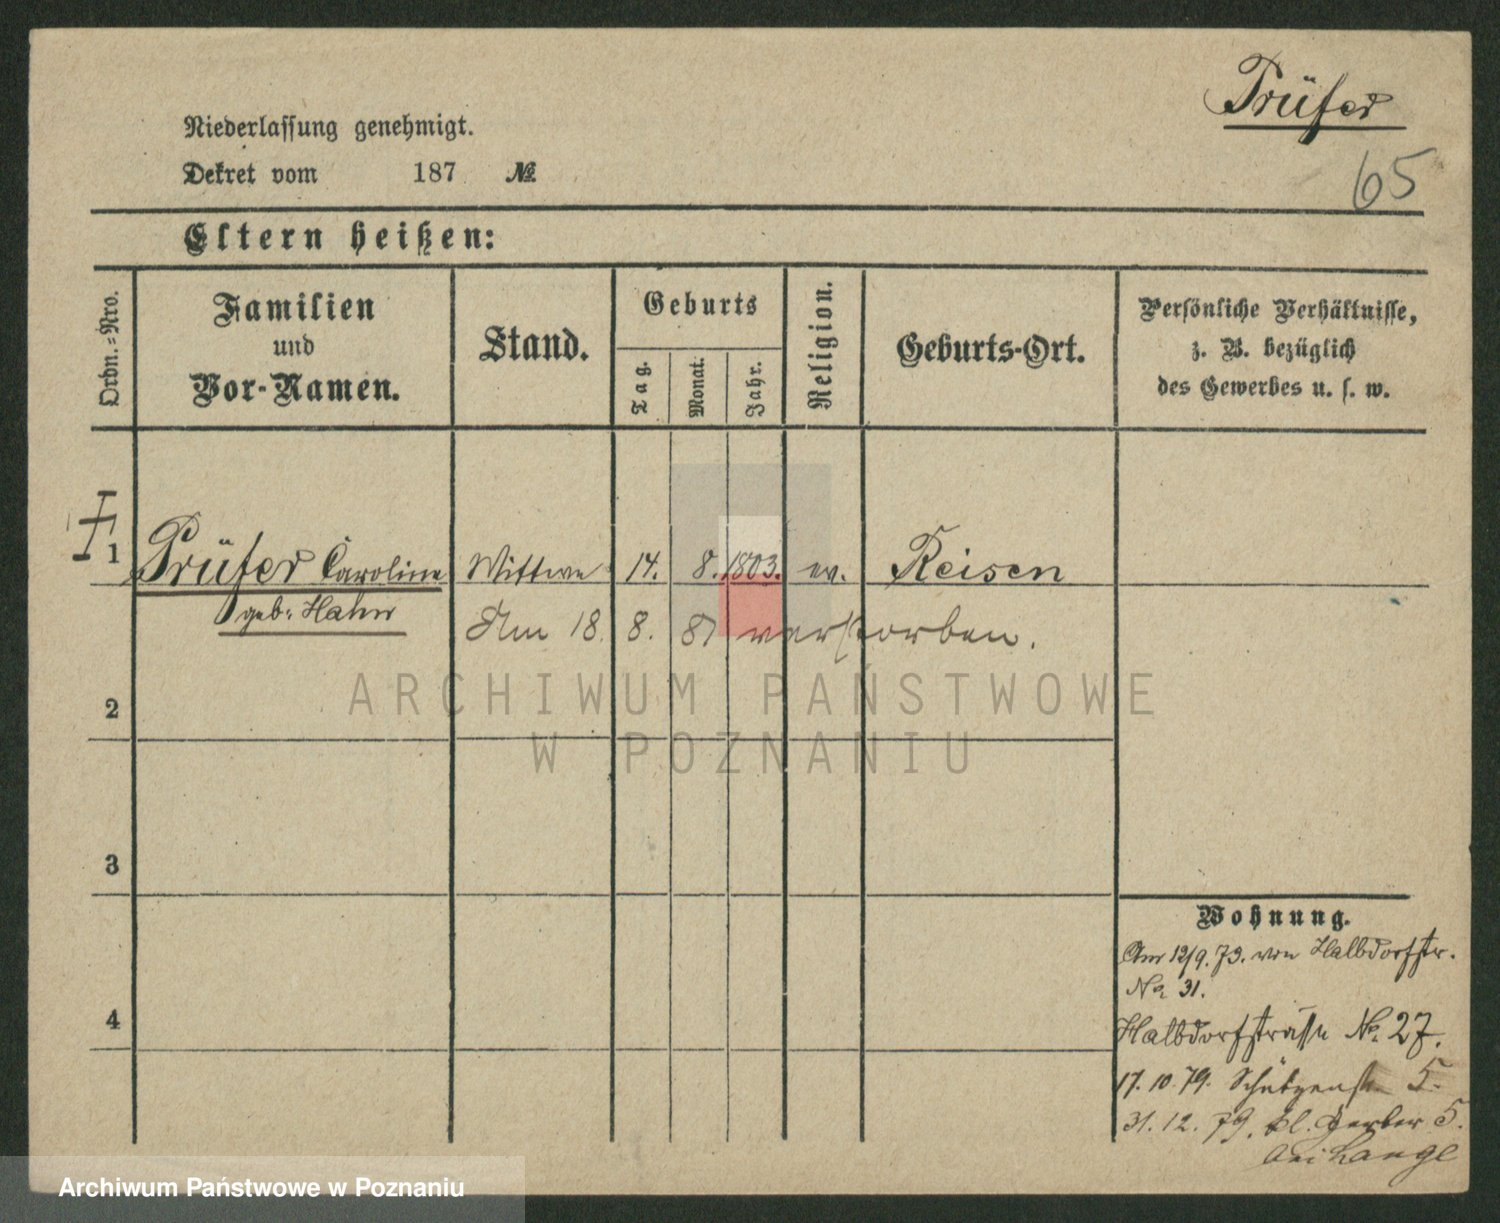 Prüfer
65
Niederlassung genehmigt.
Dekret vom 187 №
Eltern heißen:
Ordn.-Nro.
Familien
und
Vor-Namen.
Stand.
Geburts
Tag.
Monat.
Jahr.
Religion.
Geburts-Ort.
Persönliche Verhältnisse,
z. B. bezüglich
des Gewerbes u. s. w.
1 Prüfer Caroline Wittwe 14. 8. 1803. ev. Reisen
geb: Hahn
Am 18. 8. 81 verstorben.
ARCHIWUM PAŃSTWOWE
W POZNANIU
2
3
4
Wohnung.
Am 12/9. 73. von Halbdorfstr.
No 31.
Halbdorfstrasse No. 27.
17. 10. 79. Schützenstr. 5.
31. 12. 79. kl. Gerber 5.
bei Lange
Archiwum Państwowe w Poznaniu